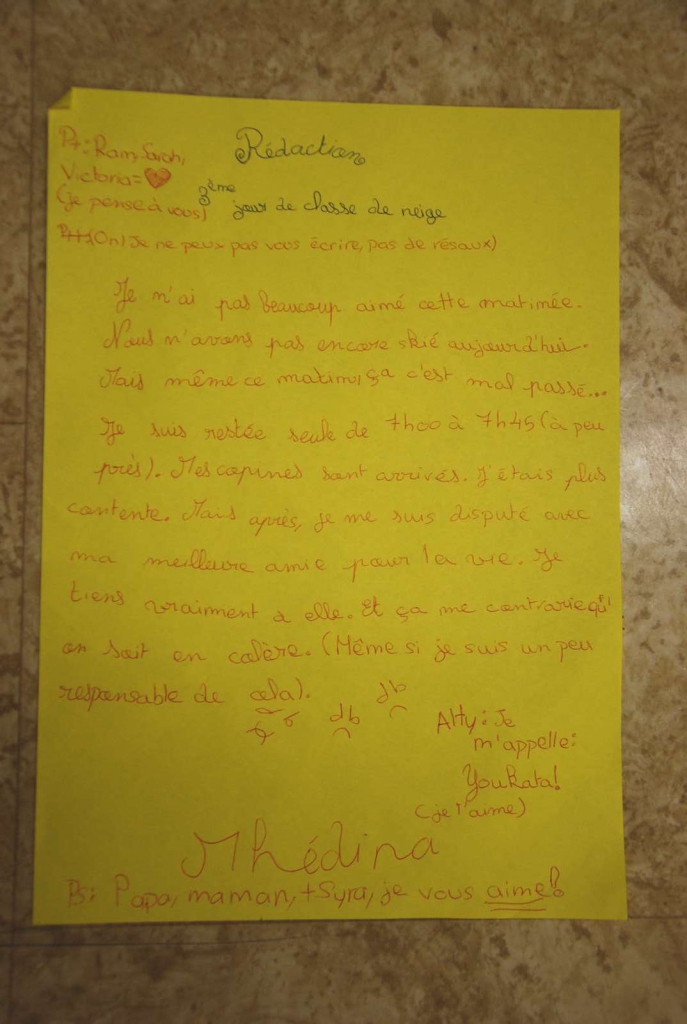 Rédaction
Pt: Ram, Sarah,
Victoria=
(je pense à vous)
3ème jour de classe de neige
(On) Je ne peux pas vous écrire, pas de résaux)
Je n'ai pas beaucoup aimé cette matinée.
Nous n'avons pas encore skié aujourd'hui.
Mais même ce matin, ça c'est mal passé...
Je suis restée seule de 7h00 à 7h45 (à peu
près). Mes copines sont arrivés. J'étais plus
contente. Mais après, je me suis disputé avec
ma meilleure amie pour la vie. Je
tiens vraiment a elle. Et ça me contrarie qu'
on soit en colère. (Même si je suis un peu
responsable de cela).
Atty: Je
m'appelle:
Youkata!
(je t'aime)
Mhédina
Ps: Papa, maman, + Syra, je vous aime!